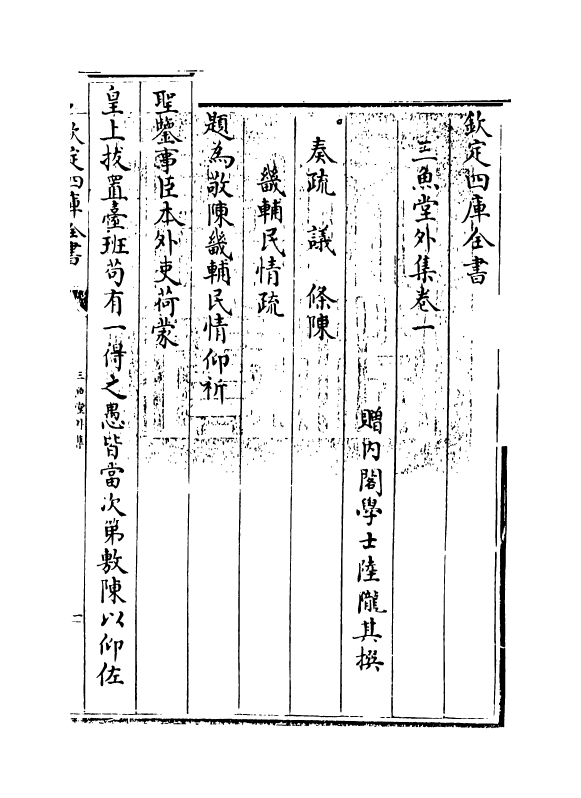 欽定四庫全書
三魚堂外集卷一
贈内閣學士陸隴其撰
奏疏 議 條陳
畿輔民情疏
題為敬陳畿輔民情仰祈
聖鑒事臣本外吏荷蒙
皇上拔置臺班苟有一得之愚皆當次第敷陳以仰佐
欽定四庫全書
三魚堂外集
一